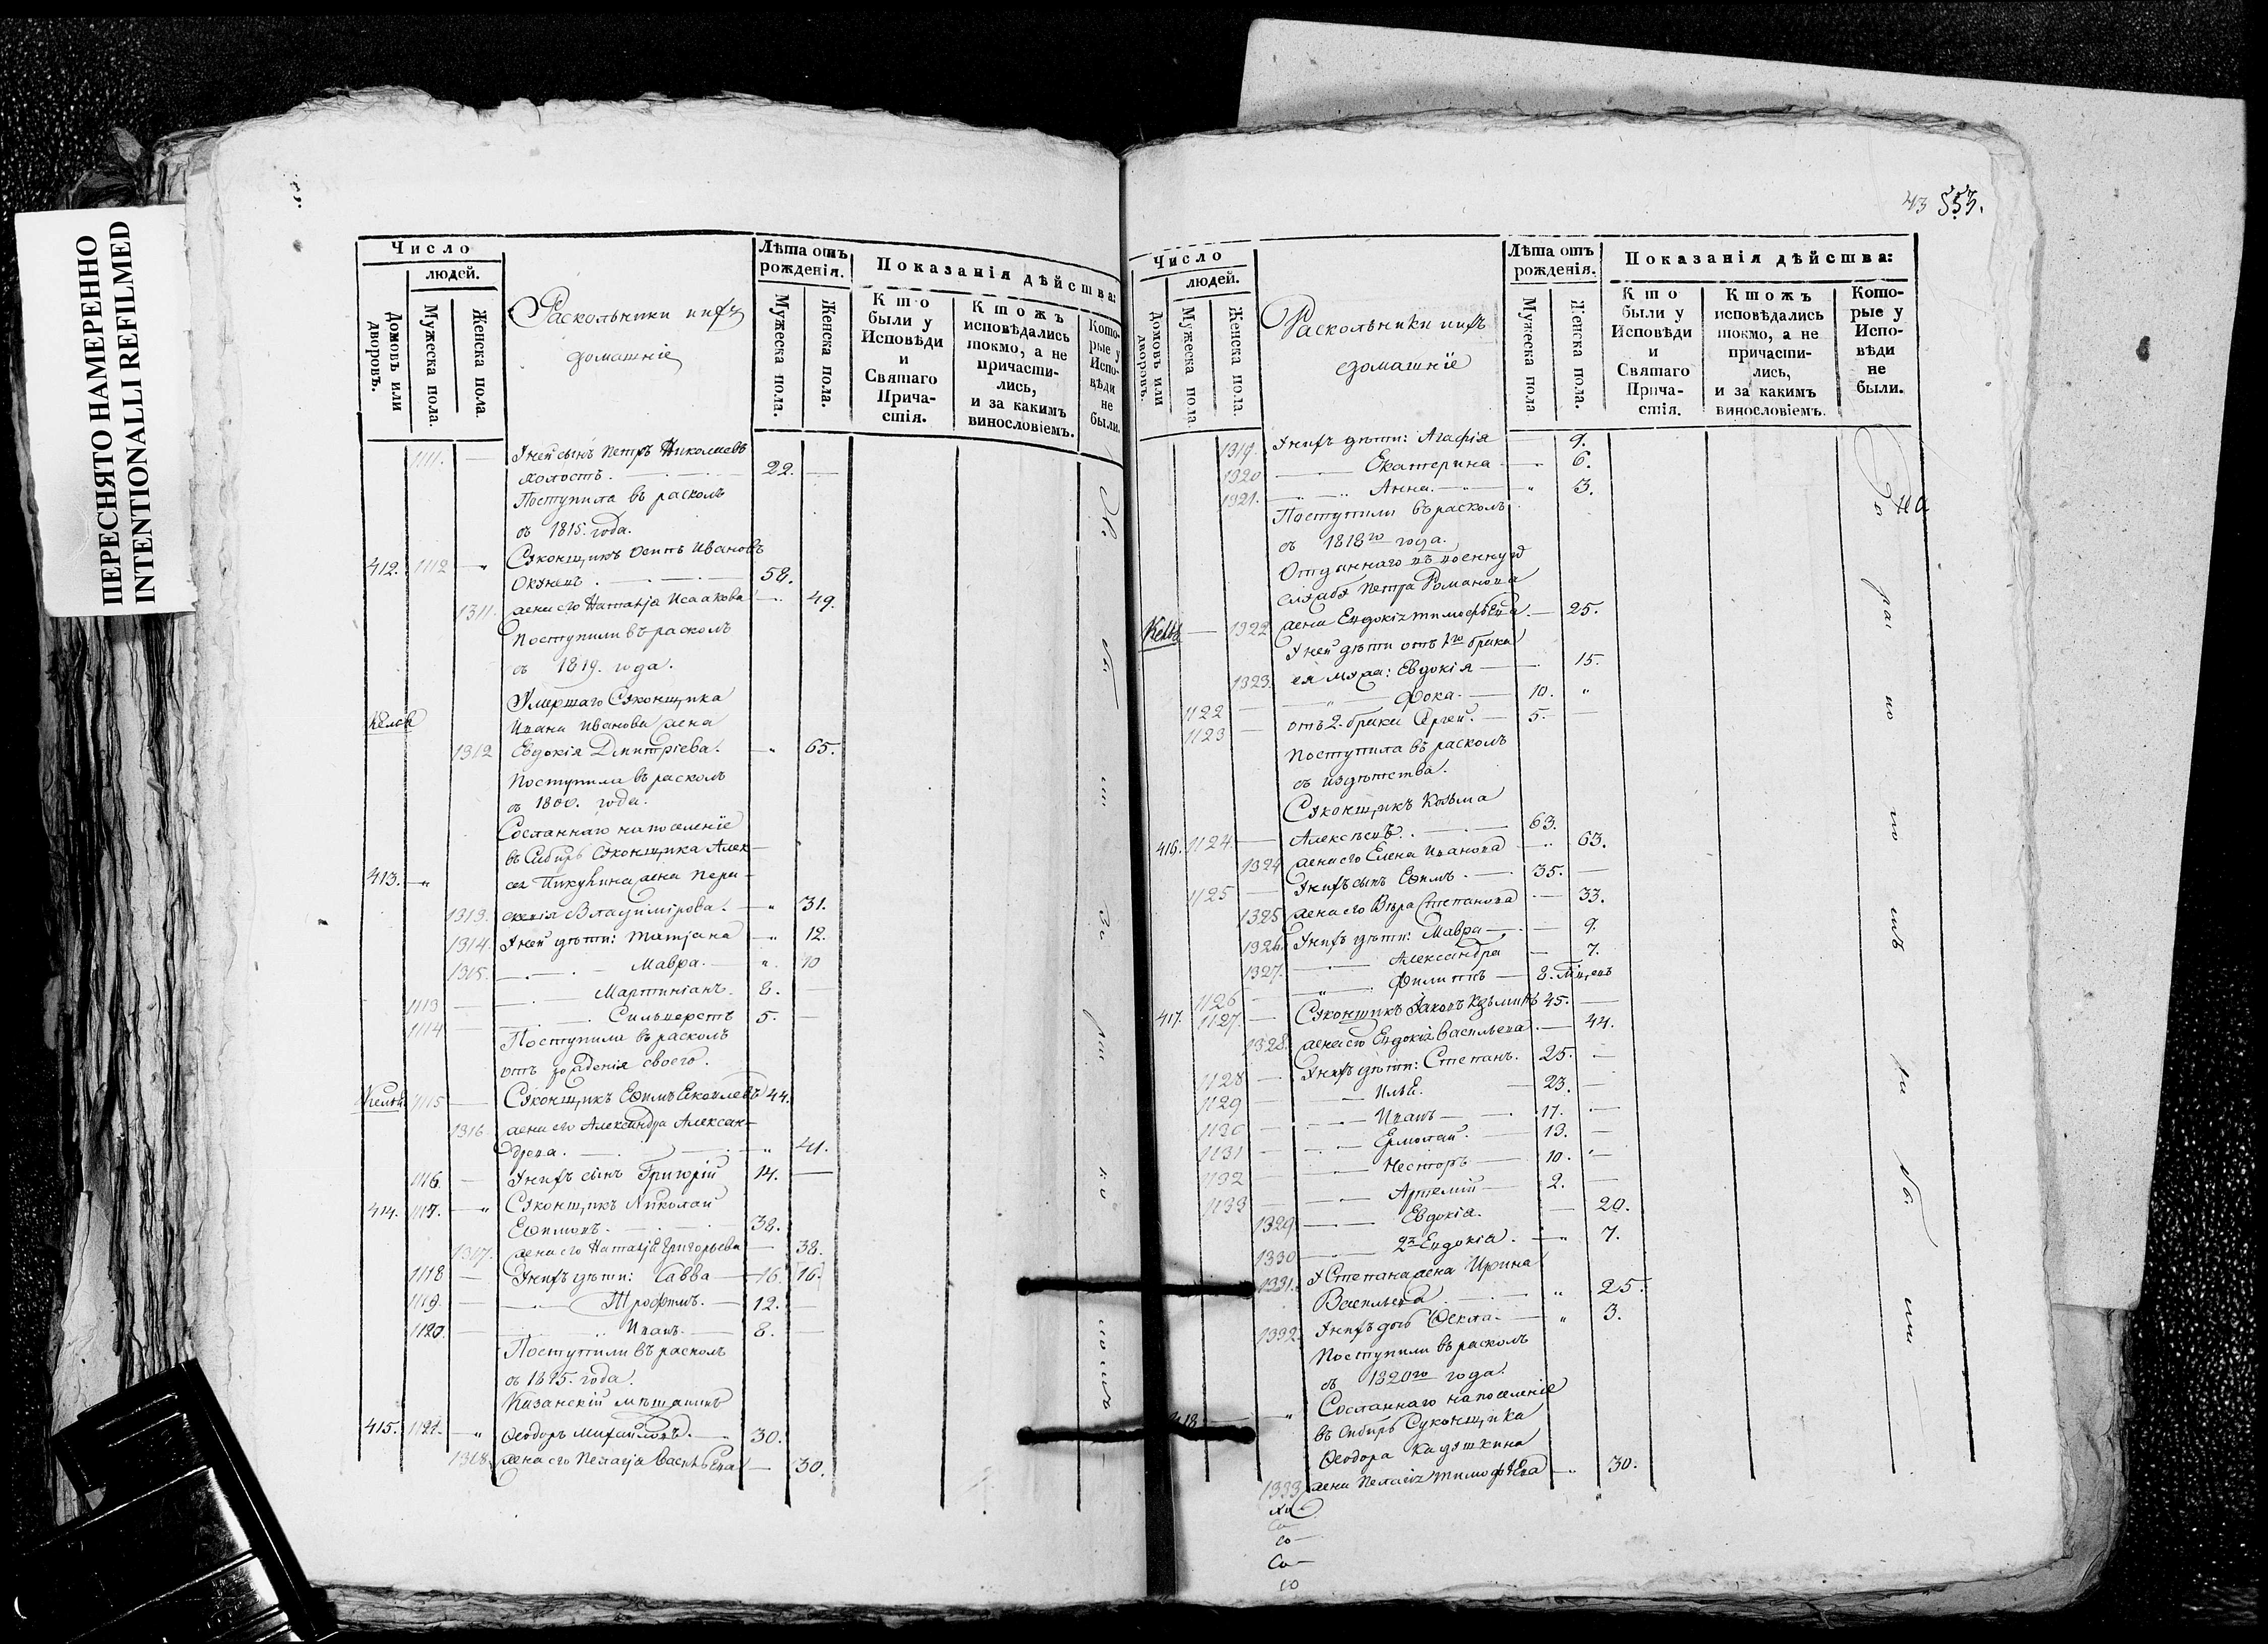 ПЕРЕСНЯТО НАМЕРЕННО
INTENTIONALLI REFILMED
Число
людей.
Домовъ или дворовъ.
Мужеска пола.
Женска пола.
Раскольники ихъ
домашніе
Лѣта отъ рожденія.
Мужеска пола.
Женска пола.
Показанія дѣйства:
Кто были у Исповѣди и Святаго Прича-стія.
Ктожъ исповѣдались токмо, а не причасти-лись, и за какимъ винословіемъ.
Кото-рые у Испо-вѣди не были.
1111. — У ней сынъ Петръ Николаевъ
холостъ. 22.
Поступила въ расколъ
съ 1815. года.
412. 1112 — Суконщикъ Осипъ Ивановъ
58.
1311. жена его Наталja Исаакова 49.
Поступили въ расколъ
съ 1819. года.
Умершаго Суконщика
Ивана Иванова жена
1312 Евдокія Дмитріева. 65.
Поступила въ расколъ
съ 1800. года.
Сосланнаго на поселеніе
въ Сибирь Суконщика Алек-
413. сея Пикулина жена Пара-
1313. скевія Владимірова. 31.
1314. У ней дѣти: Татjана 12.
1315. Мавра. 10
1113 Мартиніанъ. 8.
1114 Сильверстъ 5.
Поступили въ расколъ
отъ рожденія своего.
1115 Суконщикъ Ефимъ 44.
1316 жена его Александра Алексан-
дрова. 41.
1116 У нихъ сынъ Григорій 14.
414. 1117. Суконщикъ Николай
Ефимовъ. 38.
1317. жена его Наталja Григорьева 38.
1118 У нихъ дѣти: Савва 16. 16.
1119. Трофимъ. 12.
1120. Иванъ. 8.
Поступили въ расколъ
съ 1815. года.
Казанскій мѣщанинъ
415. 1121. Ѳеодоръ Михайловъ. 30.
1318. жена его Пелагja Васильева 30.
43 553.
Число
людей.
Домовъ или дворовъ.
Мужеска пола
Женска пола.
Раскольники ихъ
домашніе
Лѣта отъ рожденія.
Мужеска пола
Женска пола.
Показанія дѣйства:
Кто были у Исповѣди и Святаго Прича-стія.
Ктожъ исповѣдались токмо, а не причасти-лись, и за какимъ винословіемъ.
Кото-рые у Испо-вѣди не были.
1319. У нихъ дѣти: Агафія 9.
1320 Екатерина 6.
1321. Анна. 3.
Поступили въ расколъ
съ 1818го года.
Отданнаго въ военную
службу Петра Романова
1322 жена Евдокія Тимофѣева. 25.
У ней дѣти отъ 1го брака
1323. ея мужа: Евдокія 15.
1122 Фока. 10.
1123 отъ 2. брака Сергей. 5.
Поступила въ расколъ
съ издѣтства.
Суконщикъ Козьма
416. 1124 Алексѣевъ. 63.
1324 жена его Елена Иванова 63.
1125 У нихъ сынъ Ефимъ. 35.
1325 жена его Вѣра Степанова 33.
1326. У нихъ дѣти: Мавра 9.
1327. Александра 7.
1126 Филиппъ 8. мѣсяцъ
417. 1127. Суконщикъ Іаковъ Козьминъ 45.
1328. жена его Евдокія Васильева. 44.
1128 У нихъ дѣти: Степанъ. 25.
1129 Илья. 23.
1130 Иванъ 17.
1131 Ермолай. 13.
1132 Несторъ 10.
1133 Артемій 2.
1329 Евдокія. 20.
1330 2я Евдокія. 7.
1331. У Степана жена Ирина
Васильева 25.
1332. У нихъ дочь Ѳекла. 3.
Поступили въ расколъ
съ 1820го года.
418 Сосланнаго на поселеніе
въ Сибирь Суконщика
Ѳеодора Кадушкина
1333 жена Пелагія Тимофѣева 30.